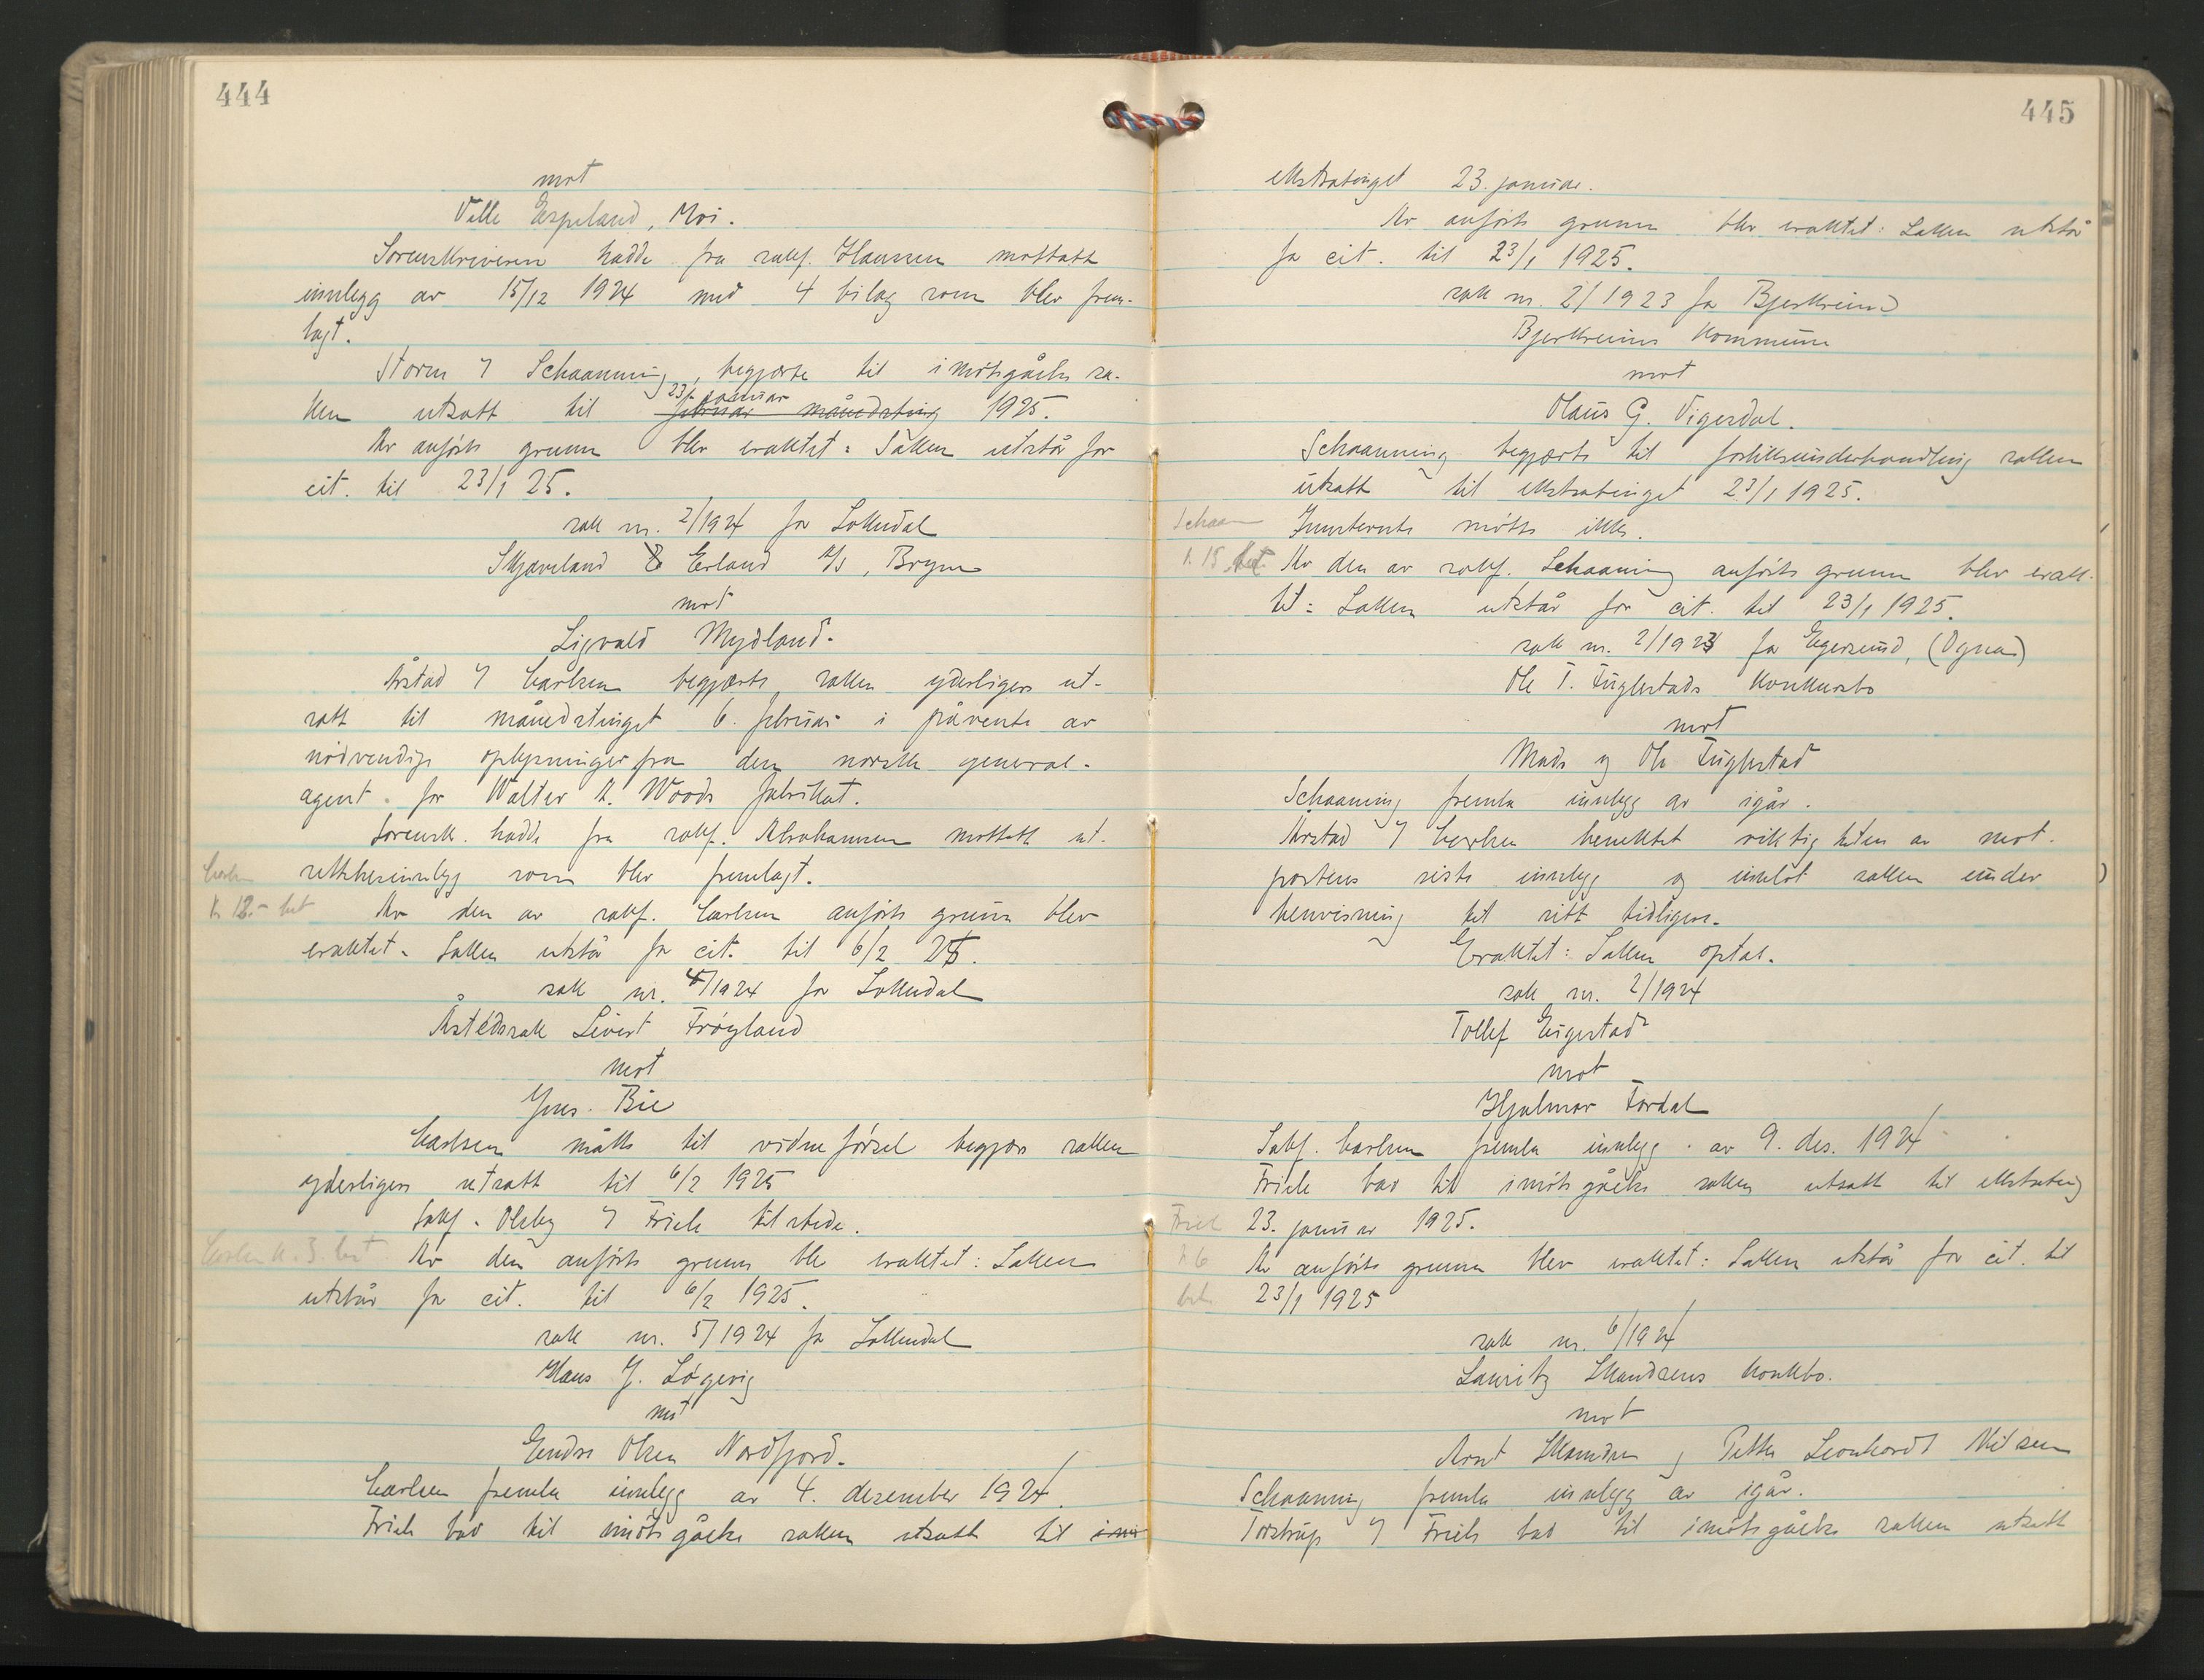 444
mot
Velle Espeland, Moi.
Sorenskriveren hadde fra sakf. Hansen mottatt
innlegg av 15/12 1924 med 4 bilag som blev frem-
lagt.
Storm 7 Schaanning begjærte til imøtegåelse sa-
23. januar
ken utsatt til februar månedsting 1925.
Av anførte grunn blev eraktet: Saken utstår for
cit. til 23/1 25.
sak nr. 2/1924 for Sokndal
Skjæveland & Erland A/S, Bryne
mot
Sigvald Mydland.
Årstad 7 Carlsen begjærte saken yderligere ut-
satt til månedstinget 6. februar i påvente av
nødvendige oplysninger fra den norske general-
agent for Walter A. Woods fabrikat.
Sorensk. hadde fra sakf. Abrahamsen mottatt ut-
settelsesinnlegg som blev fremlagt.
Carlsen
k 12.- bet
Av den av sakf. Carlsen anførte grunn blev
eraktet. Saken utstår for cit. til 6/2 25.
sak nr. 4/1924 for Sokndal
Åstedssak Sivert Frøyland
mot
Jens. Bie
Carlsen måtte til vidneførsel begjære saken
yderligere utsatt til 6/2 1925
Sakf. Olsby 7 Friele tilstede.
Carlsen k. 3. bet
Av den anførte grunn blev eraktet: Saken
utstår for cit. til 6/2 1925.
sak nr. 5/1924 for Sokndal
Hans J. Løgevig
mot
Endre Olsen Nordfjord.
Carlsen fremla innlegg av 4. desember 1924.
Friele bad til imøtegåelse saken utsatt til
445
ekstratinget 23. januar.
Av anførte grunn blev eraktet: Saken utstår
for cit. til 23/1 1925.
sak nr. 2/1923 for Bjerkreim
Bjerkreims kommune
mot
Olaus G. Vigesdal.
Schaanning begjærte til forliksunderhandling saken
utsatt til ekstratinget 23/1 1925.
Schaan
Innstevnte møtte ikke.
k. 15. bet.
Av den av sakf. Schaaning anførte grunn blev erak-
tet: Saken utstår for cit. til 23/1 1925.
sak nr. 2/1923 for Egersund, (Ogna)
Ole T. Fuglestads konkursbo
mot
Mads og Ole Fuglestad
Schaaning fremla innlegg av igår.
Årstad 7 Carlsen benektet riktigheten av mot-
partens siste innlegg og innlot saken under
henvisning til sitt tidligere.
Eraktet: Saken optas.
sak nr. 2/1924
Tollef Eigestad
mot
Hjalmar Førdal
Sakf. Carlsen fremla innlegg av 9. des. 1924
Friele bad til imøtegåelse saken utsatt til ekstrating
Friel
23. januar 1925.
k 6
Av anførte grunn blev eraktet: Saken utstår for cit. til
bet
23/1 1925
sak nr. 6/1924
Lauritz Skandsens konkbo.
mot
Arnt Skandsen og Petter Leonhard Nilsen
Schaanning fremla innlegg av igår.
Torstrup 7 Friele bad til imøtegåelse saken utsatt